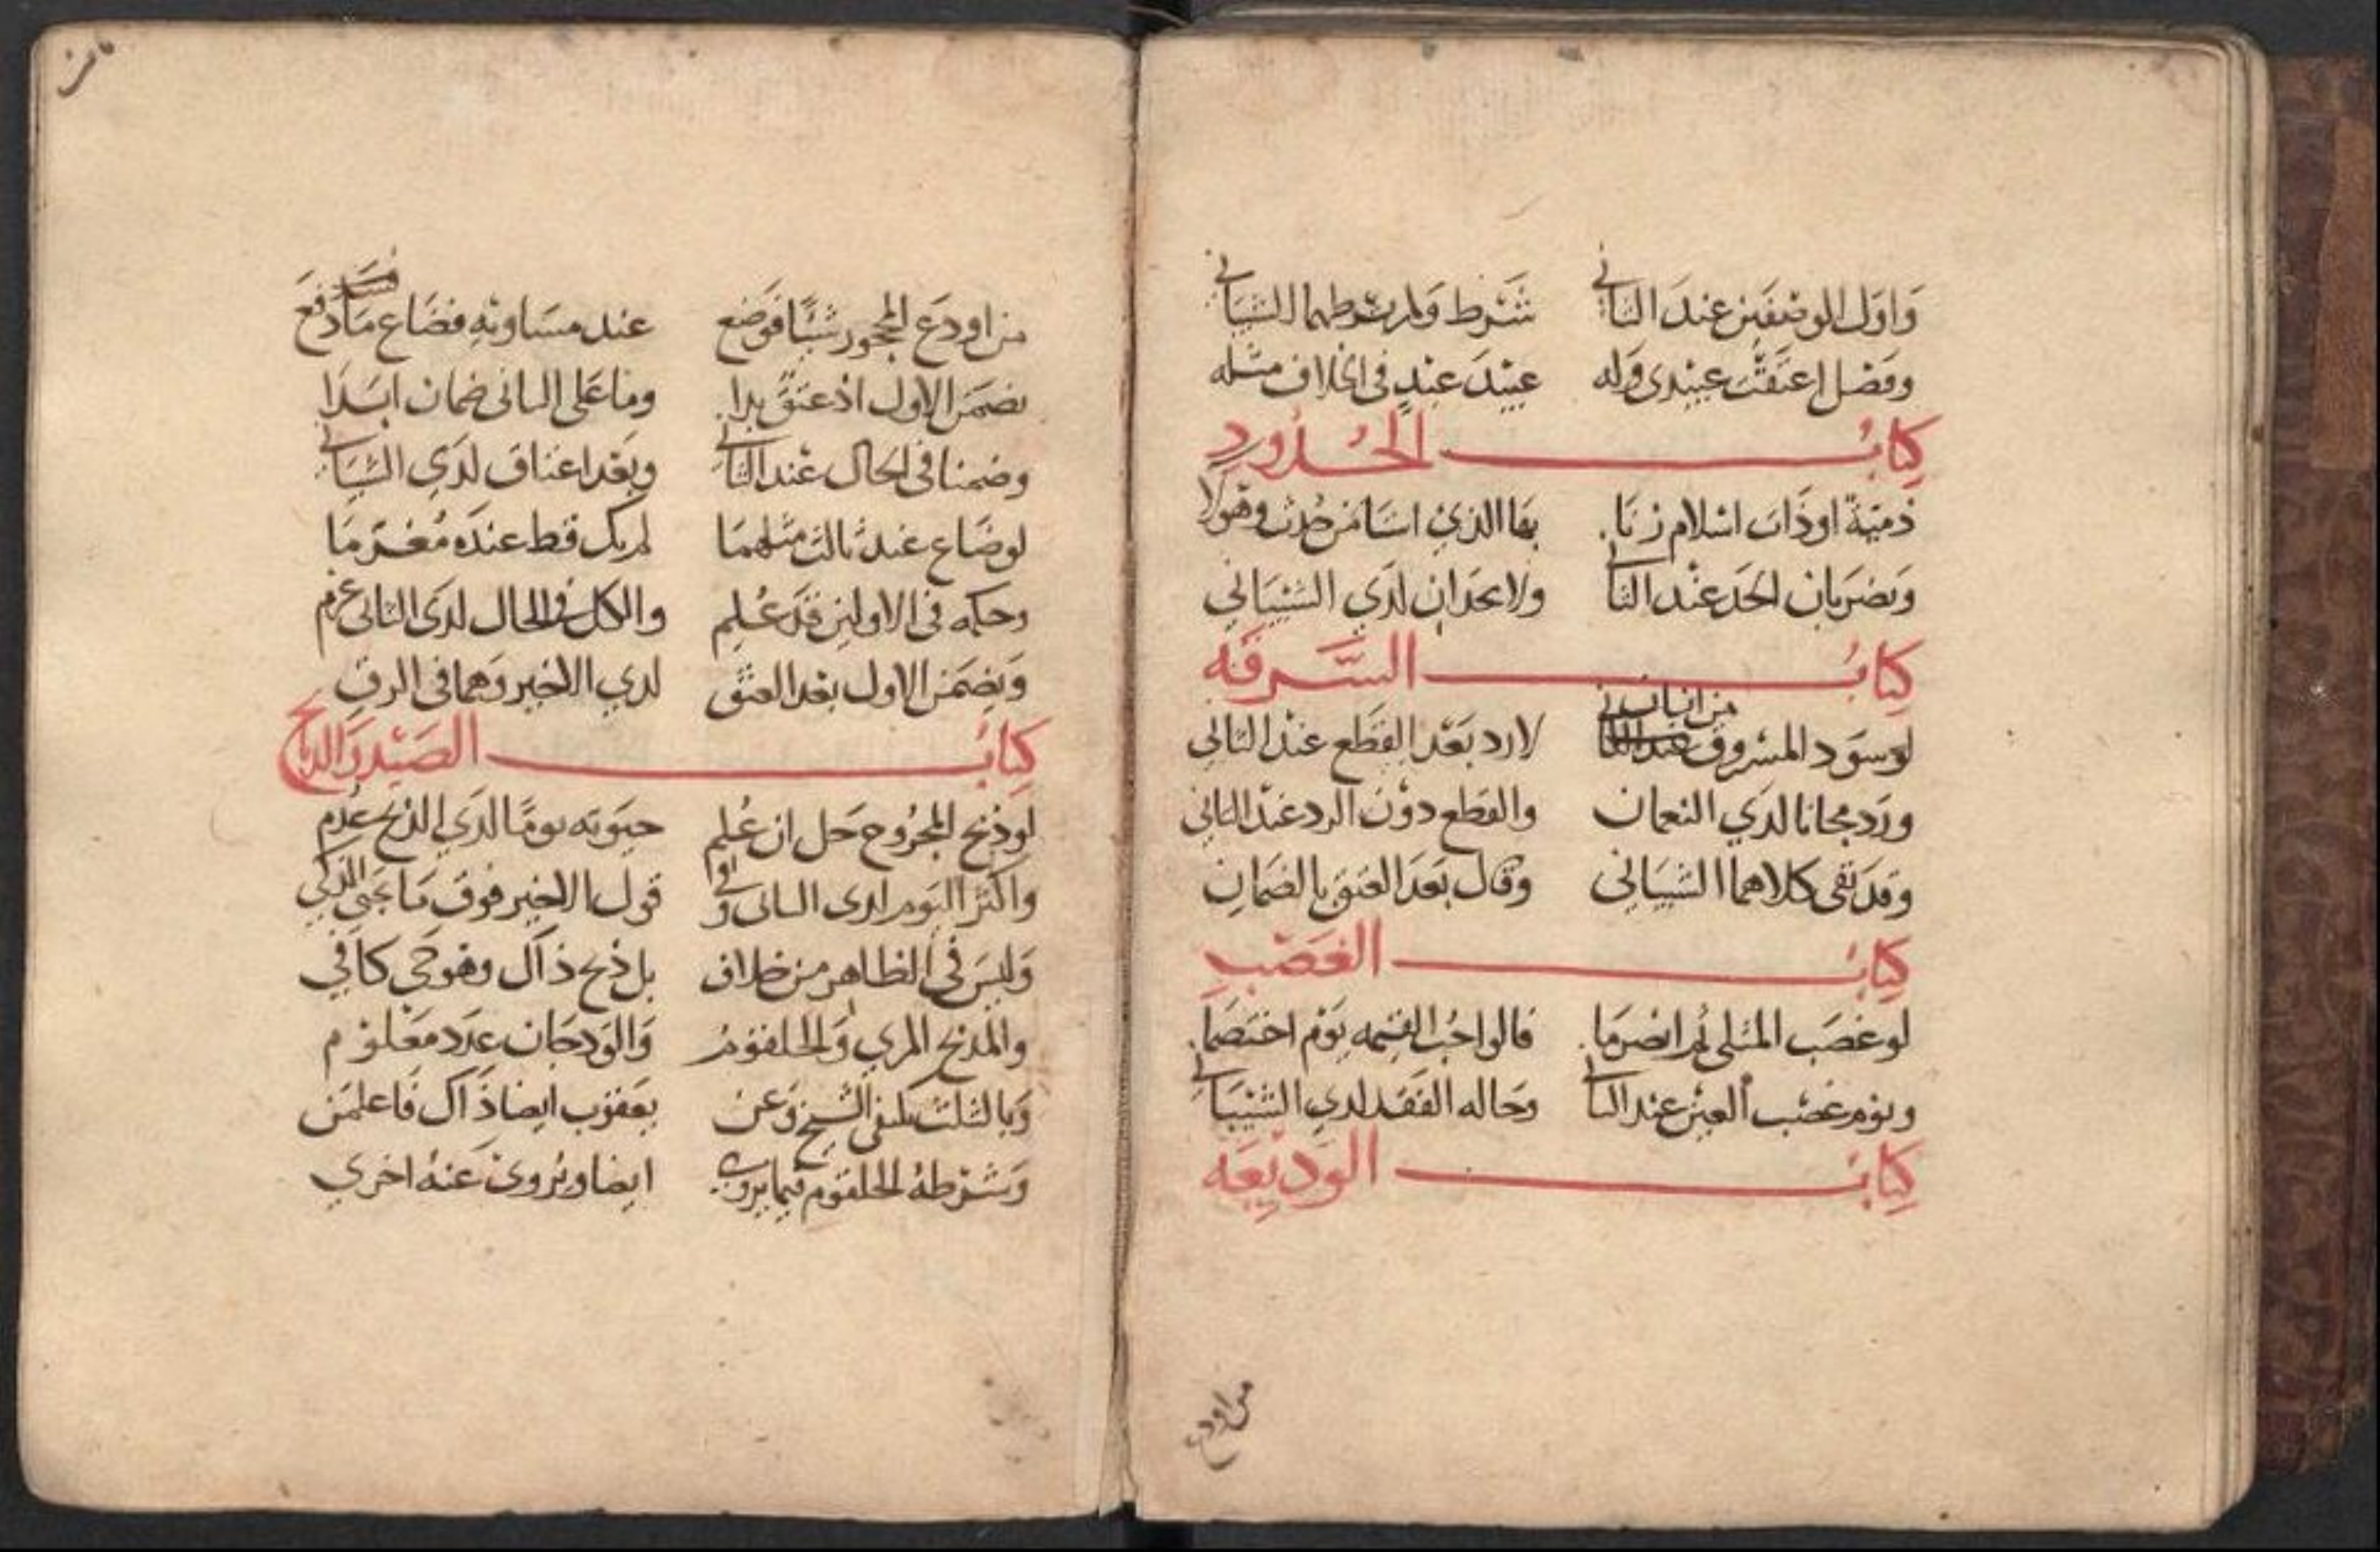 واول الوصفين عند الثاني شرط ولم يشرطهما الشيباني
وفضل اعتقت عبيدي وله عبيد عبد في الخلاف مثله
كتاب الحدود
ذمية او ذات اسلام زنا بها الذي استامن حدت وهو لا
ويضربان الحد عند الثاني ولا يحدان لدي الشيباني
كتاب السرقة
لو سود المسروق من اثباني
لا رد بعد القطع عند الثاني
ورد مجانا لدي النعمان والقطع دون الرد عند الثاني
وقد نفى كلاهما الشيباني وقال بعد العتق بالضمان
كتاب الغصب
لو غصب المثلي ثم انصرما قالواجب القيمه يوم اختصما
ويوم غصب العين عند الثاني وحاله الفقد لدي الشيباني
كتاب الوديعه
من اودع
من اودع المحجور شيئا فوضع عند مساويه فضاع ما دفع
يضمن الاول اذ عتق بدا وما على الثاني ضمان ابدا
وضمنا في الحال عند الثاني وبعد اعتاق لدي الشيباني
لو ضاع عند ثالث مثلهما لم يك قط عنده مغرما
وحكمه في الاولين قد علم والكل في الحال لدى الثاني غرم
ويضمن الاول بعد العتق لدي الاخير وهما في الرق
كتاب الصيد والذبايح
لو ذبح المجروح حل ان علم حيوته يوما لدي الذبح عدم
واكثر اليوم لدى الثاني وفي قول الاخير فوق ما يحيى الذكي
وليس في الظاهر من خلاف بل ذبح ذاك وهو حي كافي
والمذبح المري والحلقوم والودجان عدد معلوم
وبالثلث يكتفي الشيخ وعن يعقوب ايضا ذاك فاعلمن
وشرطه الحلقوم فيما يروي ايضا ويروى عنه اخري